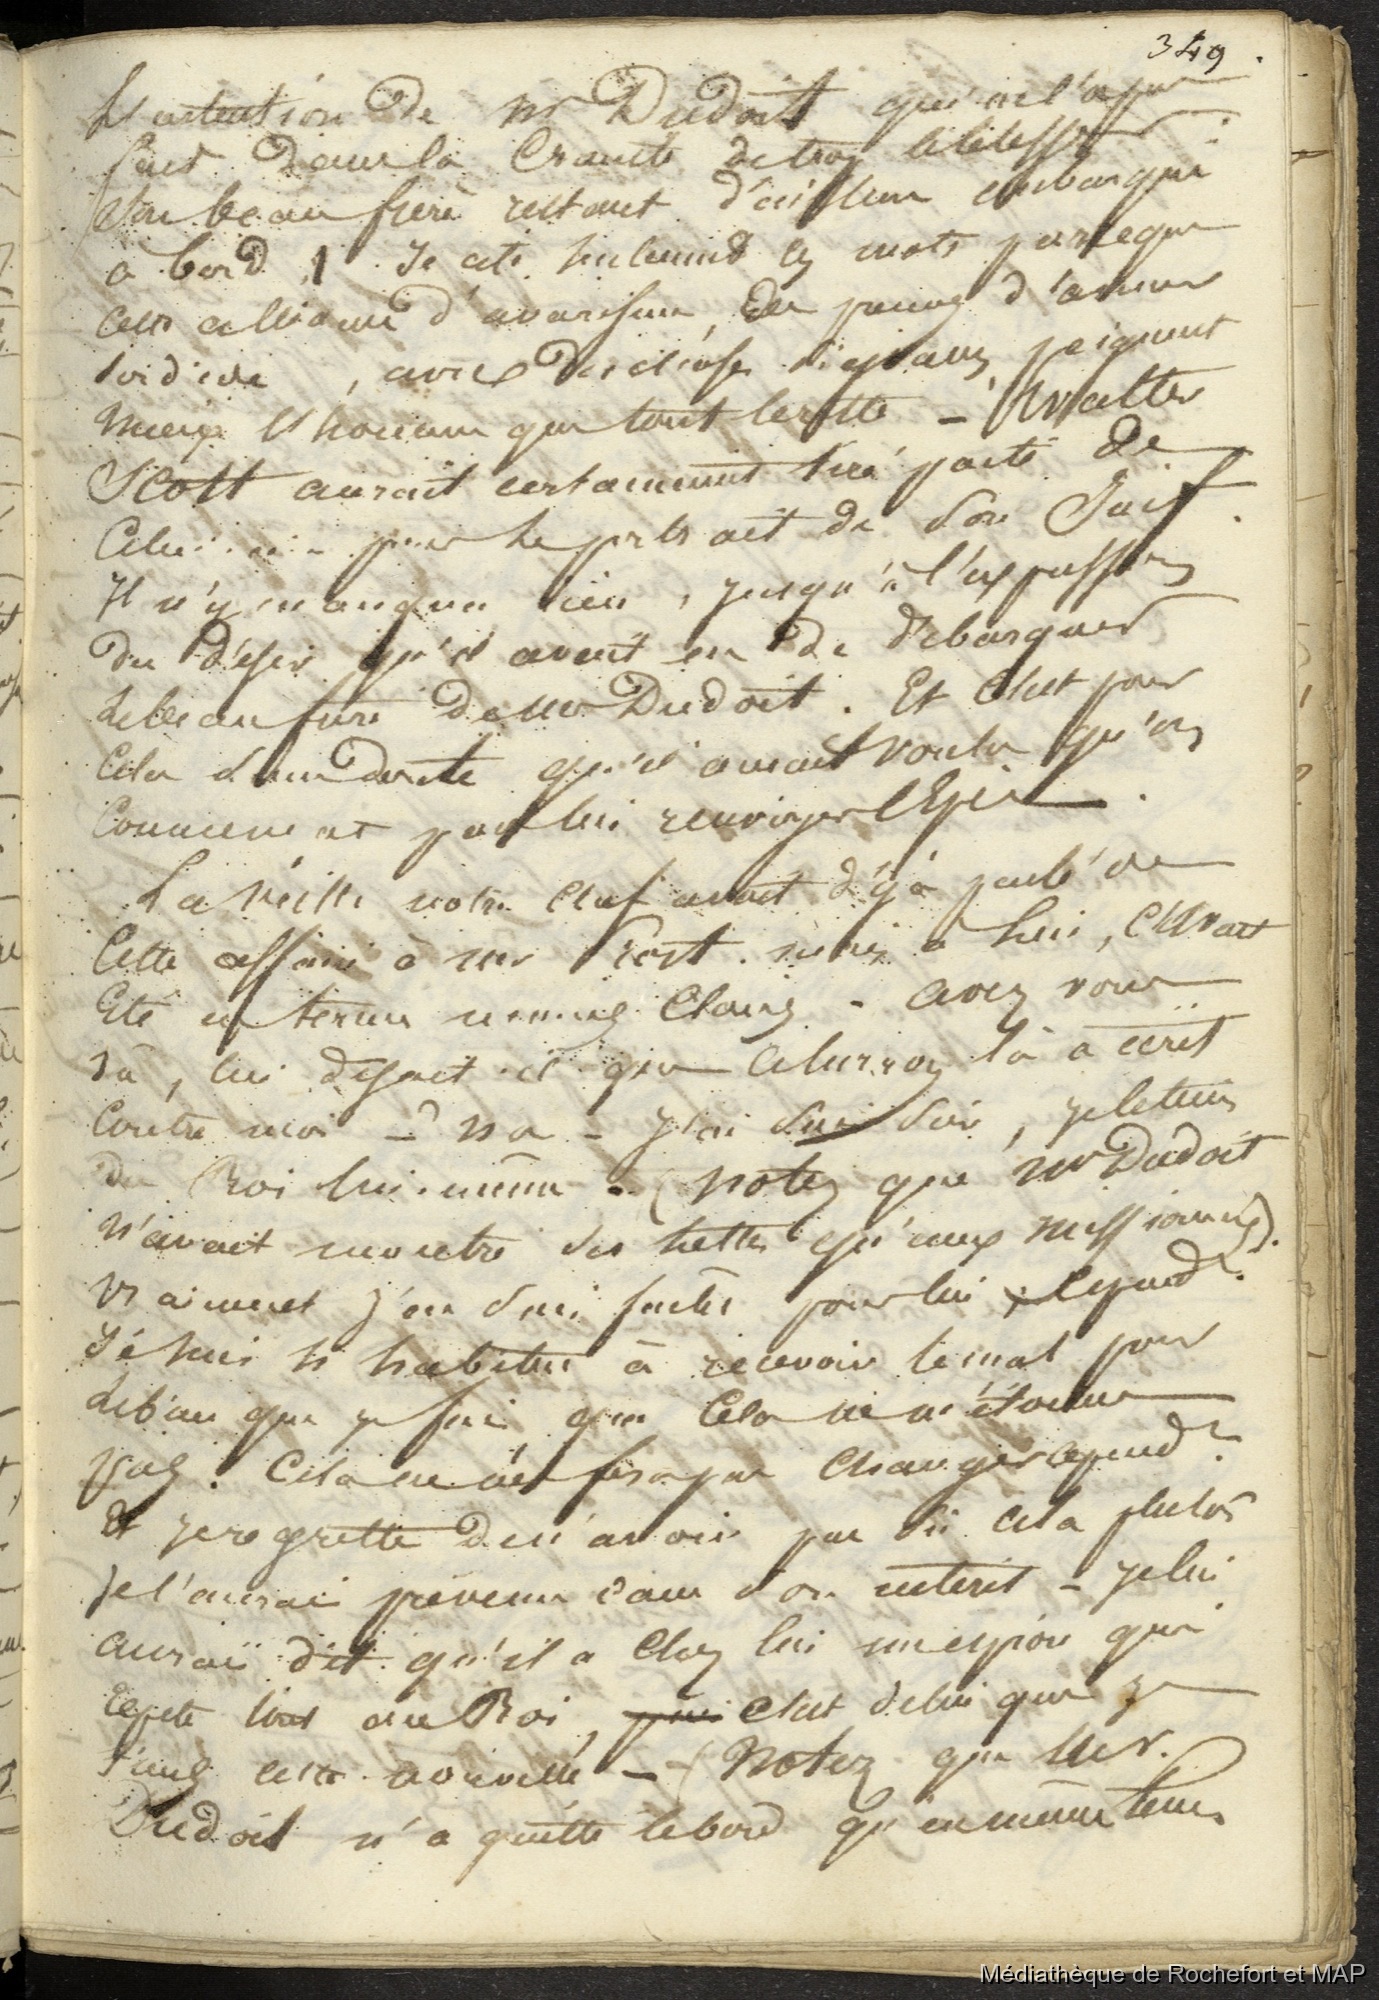 349.
L'intention de Mr Dudoit qui ne l'a pas
fait dans la crainte de trop le blesser
son beau frère restant d'ailleurs embarqué
à bord. Je cite seulement ces mots parceque
cette alliance d'avarisme, de d'amour
sordide, avec des choses si peignent
mieux l'homme que tout le reste - Walter
Scott aurait certainement tiré parti de
celui-ci pour le portrait de son Juif.
Il n'y manqua rien, jusqu'à l'expression
du désir qu'il avait eu de débarquer
le beau frère de Mr Dudoit. Et c'est pour
cela sans doute qu'il aurait voulu qu'on
commençat par lui renvoyer
La veille notre chef avait déjà parlé de
cette affaire à Mr mais à lui, c'avait
été en termes moins clairs - avez vous
vu, lui disait-il que là a écrit
contre moi - Non - J'en suis sûr, je le tiens
du Roi lui-même - (notez que Mr Dudoit
n'avait montré ses lettres qu'aux missionnaires).
Vraiment j'en suis fâché pour lui, repond
Je suis si habitué à recevoir le mal pour
le bien que je fais que cela ne m'étonne
pas. Cela ne me fera pas changer cepend.
Et je regrette de n'avoir pas su cela plutôt
Je l'aurai prévenu dans son intérêt - Je lui
aurai dit qu'il a chez lui un espion qui
repete tout au Roi, c'est de lui que je
tiens cette nouvelle - (Notez que Mr.
Dudoit n'a quitté le bord qu'en même tems
Médiathèque de Rochefort et MAP